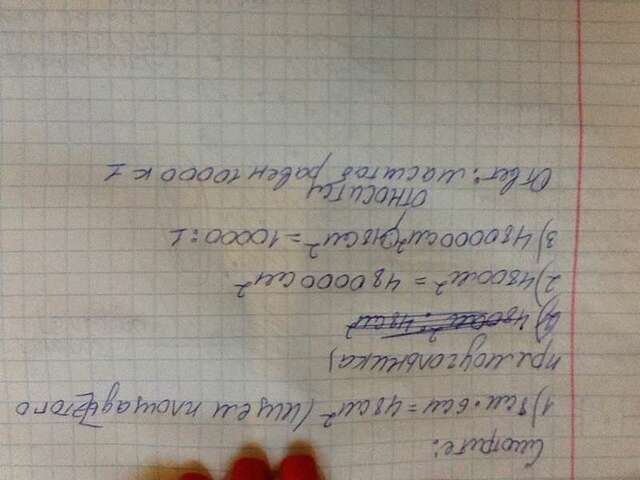 Смотрите:
1) 8см · 6см = 48см² (ищем площадь этого
прямоугольника)
2) 4800м² : 48см²
2) 4800м² = 480000см²
3) 480000см² 48см² = 10000:1
относится
Ответ: масштаб равен 10000 к 1